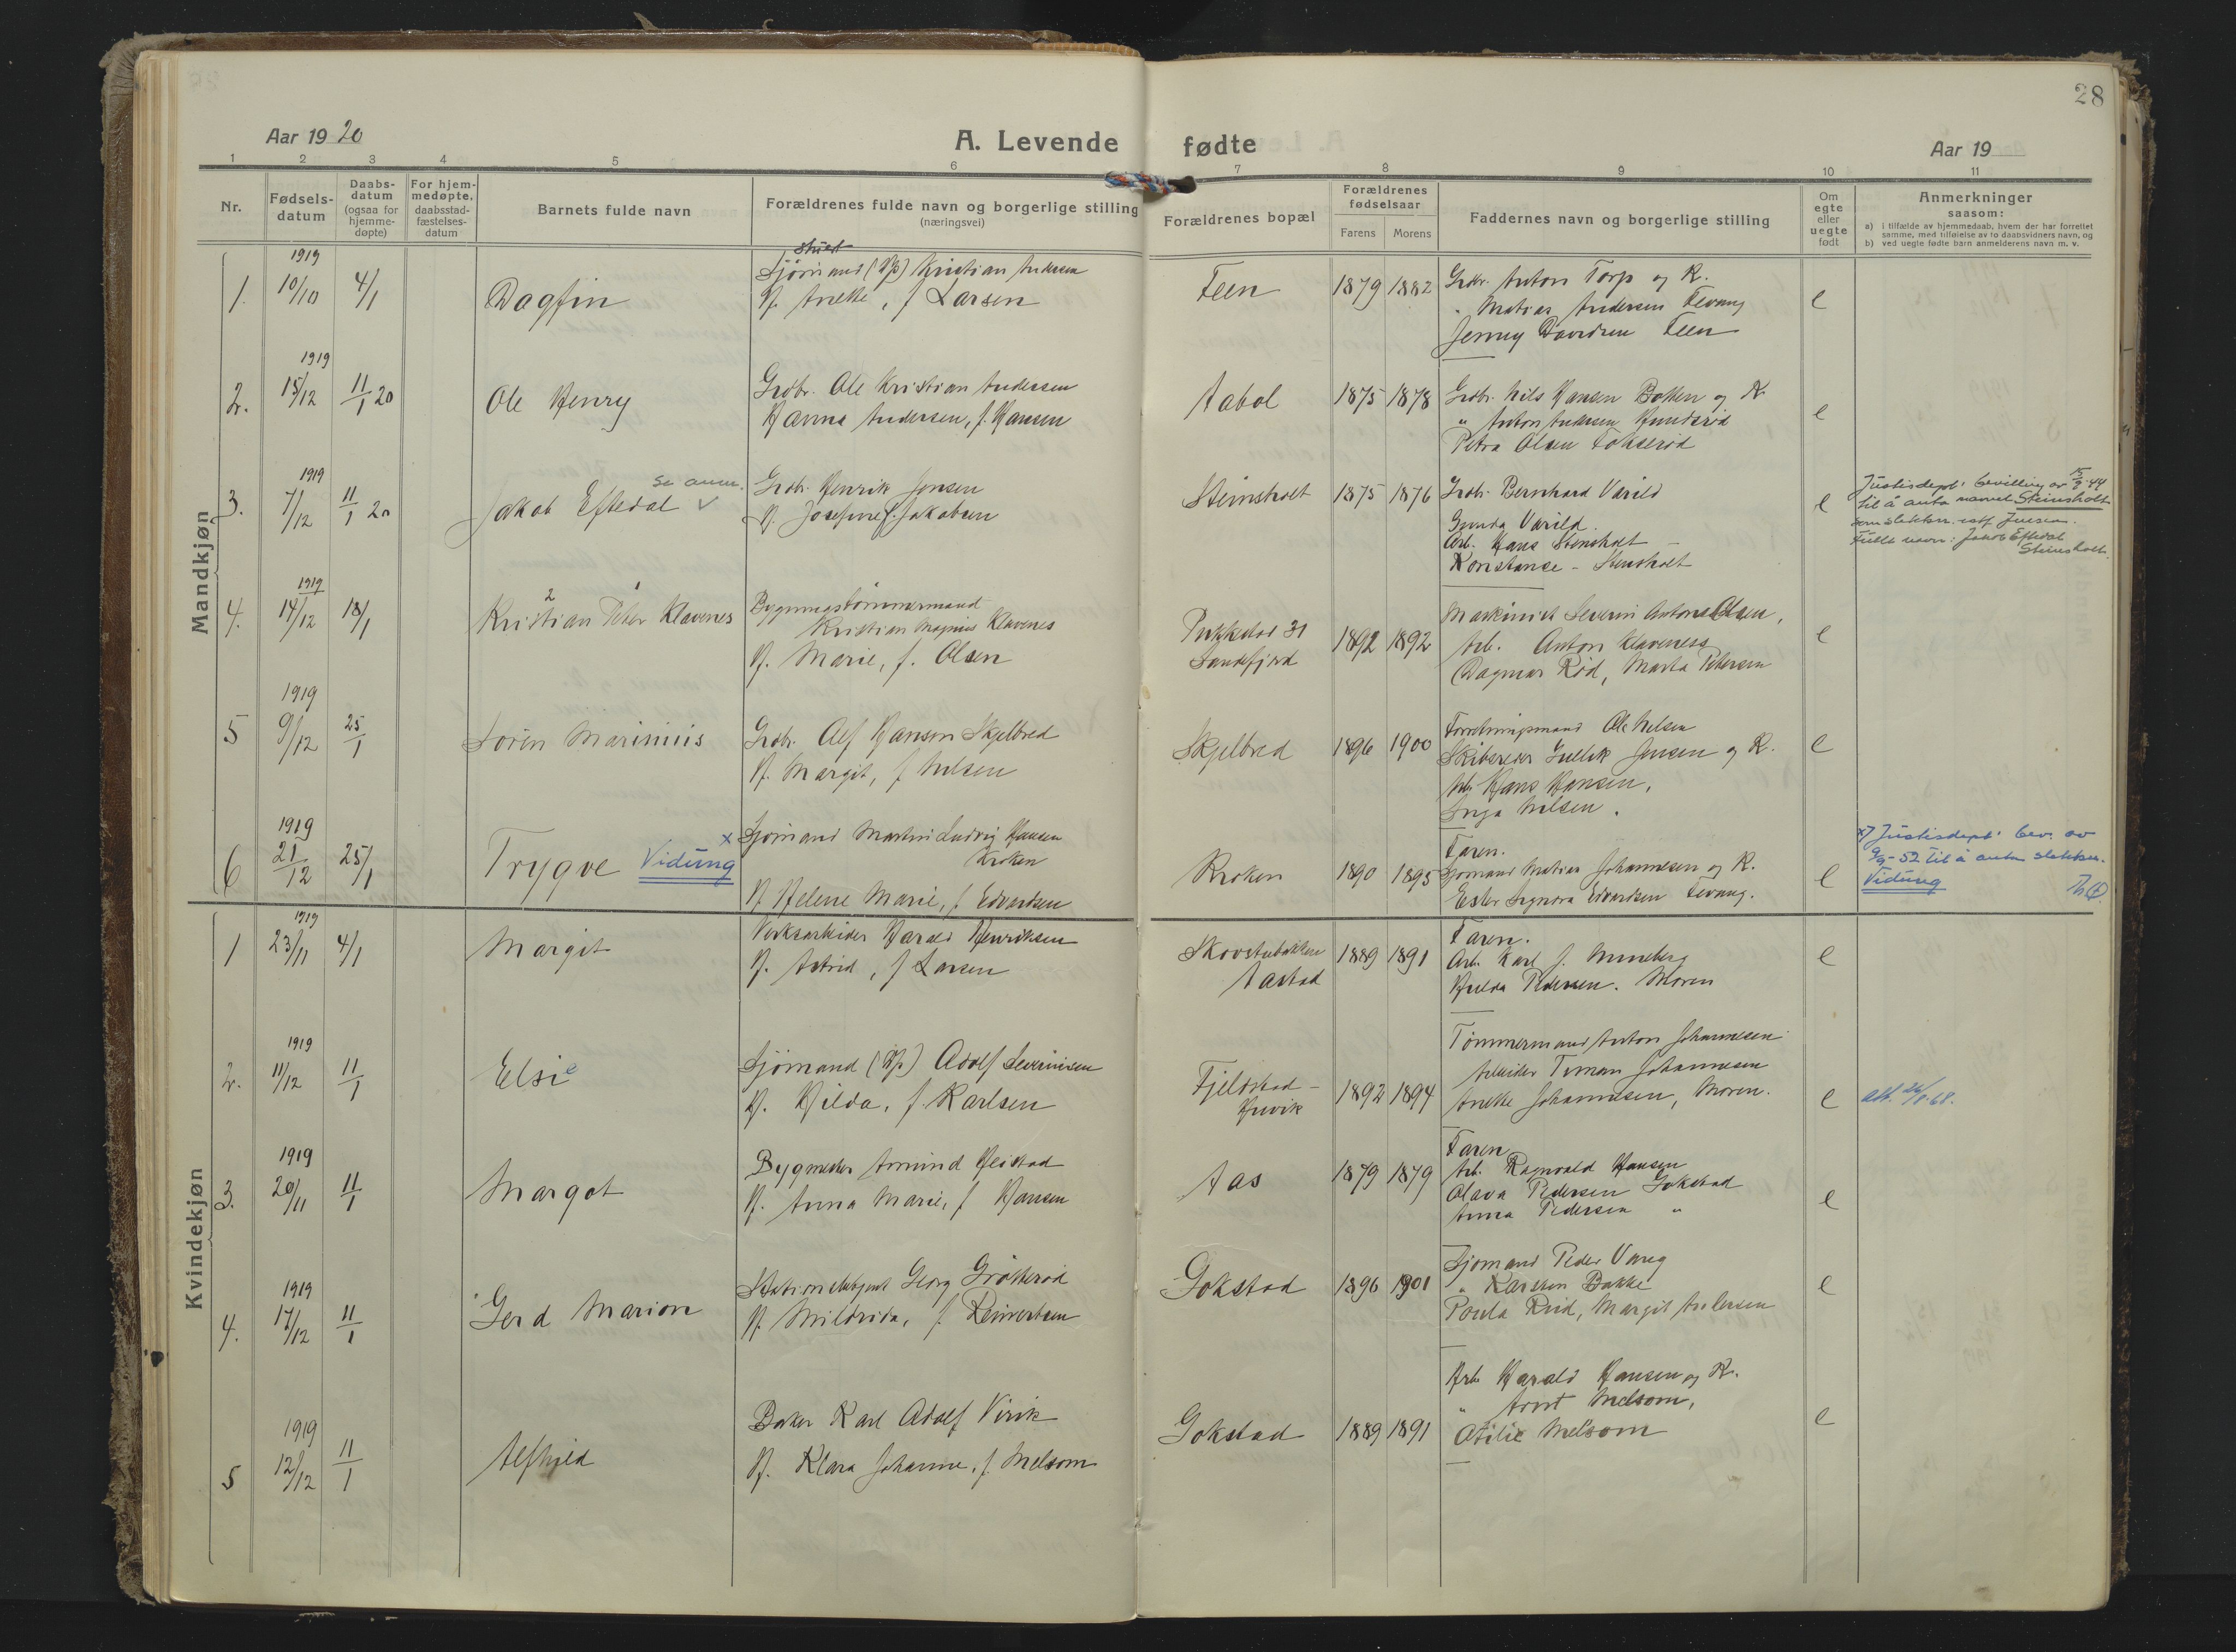 28
Aar 1920
A. Levende fødte
Aar 19
1 2 3 4 5 6 7 8 9 10 11
Nr.
Fødsels-
datum
Daabs-
datum
(ogsaa for
hjemme-
døpte)
For hjem-
medøpte,
daabsstad-
fæstelses-
datum
Barnets fulde navn
Forældrenes fulde navn og borgerlige stilling
(næringsvei)
Forældrenes bopæl
Forældrenes
fødselsaar
Farens Morens
Faddernes navn og borgerlige stilling
Om
egte
eller
uegte
født
Anmerkninger
saasom:
a) i tilfælde av hjemmedaab, hvem der har forrettet
samme, med tilføielse av to daabsvidners navn, og
b) ved uegte fødte barn anmelderens navn m. v.
Mandkjøn
1919
1. 10/10 4/1 Dagfin
Sjømand Kristian Andersen
H. Anette, f Larsen
Feen 1879 1882
Grdbr. Anton Torp og K.
" Matias Andersen Fevang
Jenny Davidsen Feen
e
1919
2. 15/12 11/1 20 Ole Henry
Grdbr. Ole Kristian Andersen
Hanna Andersen, f. Hansen
Aabol 1875 1878
Grdbr. Nils Hansen og K
" Anton Andersen
Petra Olsen Fokserød
e
1919
3. 7/12 11/1 20 Jakob Eftedal se anm. v
Grdbr. Henrik Jensen
H. Josefine f. Jakobsen
Steinsholt 1875 1876
Grdbr. Bernhard Varild
Gunda Varild.
Arb. Hans Stensholt
Konstanse - Stensholt
e
Justisdept' bevilling av 15/8 44
til å anta navnet Steinsholt
som slektsn. istf. Jensen.
Fullt navn: Jakob Eftedal
Steinsholt.
1919
4. 14/12 18/1 Kristian 2 Peter 1 Klavenes
Bygningstømmermand
Kristian Magnus Klavenes
H. Marie, f. Olsen
Pukkelos 31
Sandefjord
1892 1892
Maskinist Severin Anton Olsen,
Arb. Anton Klaveness
Dagmar Rød, Marta Petersen
e
1919
5 9/12 25/1 Søren Marinius
Grdbr. Alf Hansen Skjelbred
H. Margit, f Nilsen
Skjelbred 1896 1900
Forretningsmand Ole Nilsen
Skibsreder Gullik Jensen og K.
Arb. Hans Hansen,
Inga Nilsen.
e
1919
6 21/12 25/1 Trygve Vidung x
Sjømand Martin Ludvig Hansen
Kroken
H Helene Marie, f Edvardsen
Kroken 1890 1895
Faren.
Sjømand Matias Johannesen og K.
Ester Signora Edvardsen Fevang.
e
x) Justisdept' bev. av
9/9-52 til å anta slektsn.
Vidung
Kvindekjøn
1919
1 23/11 4/1 Margit
Verksarbeider Harald Henriksen
H. Astrid, f Larsen
Skovstubakken
Aastad
1889 1891
Faren.
Arb. Karl J. Nuneberg
Hulda Pedersen. Moren
e
1919
2. 11/12 11/1 Elsie
Sjømand Adolf Severinsen
H. Hilda, f. Karlsen
Fjeldstad -
Huvik
1892 1894
Tømmermand Anton Johannesen
Arbeider Timan Johannesen
Anette Johannesen, Moren.
e
att. 26/8.68.
1919
3. 20/11 11/1 Margot
Bygmester Amund Heistad
H. Anna Marie, f Hansen
Aas 1879 1879
Faren
Arb. Ragnvald Hansen
Olava Pedersen Gokstad
Anna Pedersen "
e
1919
4. 17/12 11/1 Gerd Marion
Georg Grøtterød
H. Mildrida, f.
Gokstad 1896 1901
Sjømand Peder Vareg
" Karsten Bakke
Poula Ruud, Margit Andersen
e
1919
5 12/12 11/1 Alfhild
Baker Karl Adolf Virik
H. Klara Johanne, f. Melsom
Gokstad 1889 1891
Arb. Harald Hansen og K.
" Arnt Melsom,
Otilie Melsom
e